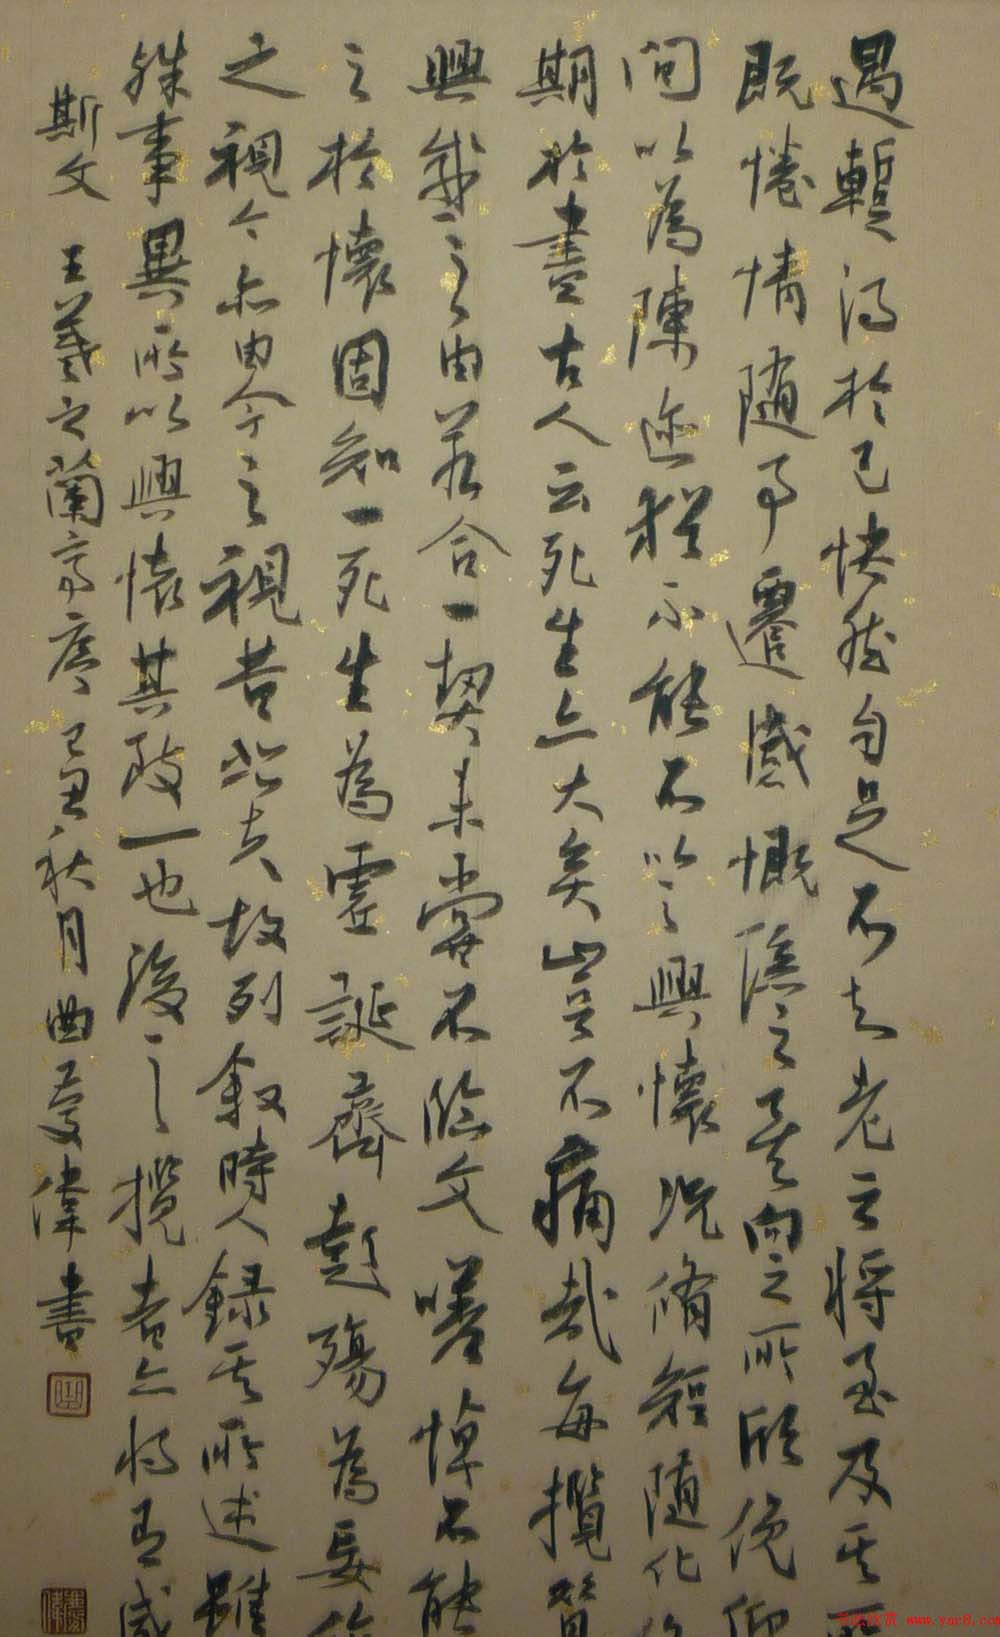 遇蹔得於己快然自足不知老之將至及其所
既惓情隨事遷感慨係之矣向之所欣俛仰
間以為陳迹猶不能不以之興懷況脩短隨化
期於盡古人云死生亦大矣豈不痛哉每攬
興感之由若合一契未嘗不臨文嗟悼不能
之於懷固知一死生為虛誕齊彭殤為妄
之視今亦由今之視昔悲夫故列叙時人錄其所述雖
殊事異所以興懷其致一也後之攬者亦將有感
斯文 王羲之蘭亭序 己丑秋月曲慶偉書
www.yac8.com